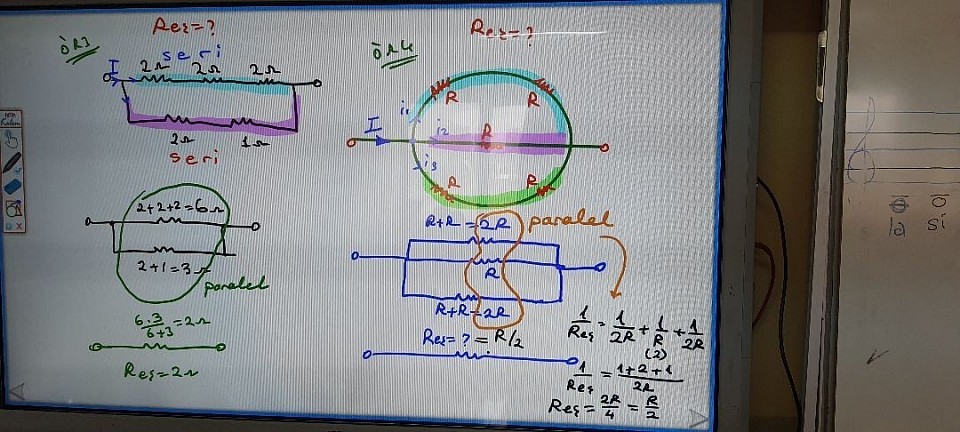 ÖR3
Reş=?
seri
I
2Ω 2Ω 2Ω
2Ω 1Ω
seri
2+2+2=6Ω
2+1=3Ω
paralel
6.3/6+3=2Ω
Reş=2Ω
ÖR4
Reş=?
R R
i1
I i2 R
i3
R R
R+R=2R
paralel
R
R+R=2R
Reş=?=R/2
1/Reş=1/2R+1/R+1/2R
(2)
1/Reş=1+2+1/2R
Reş=2R/4=R/2
Kalem
la si